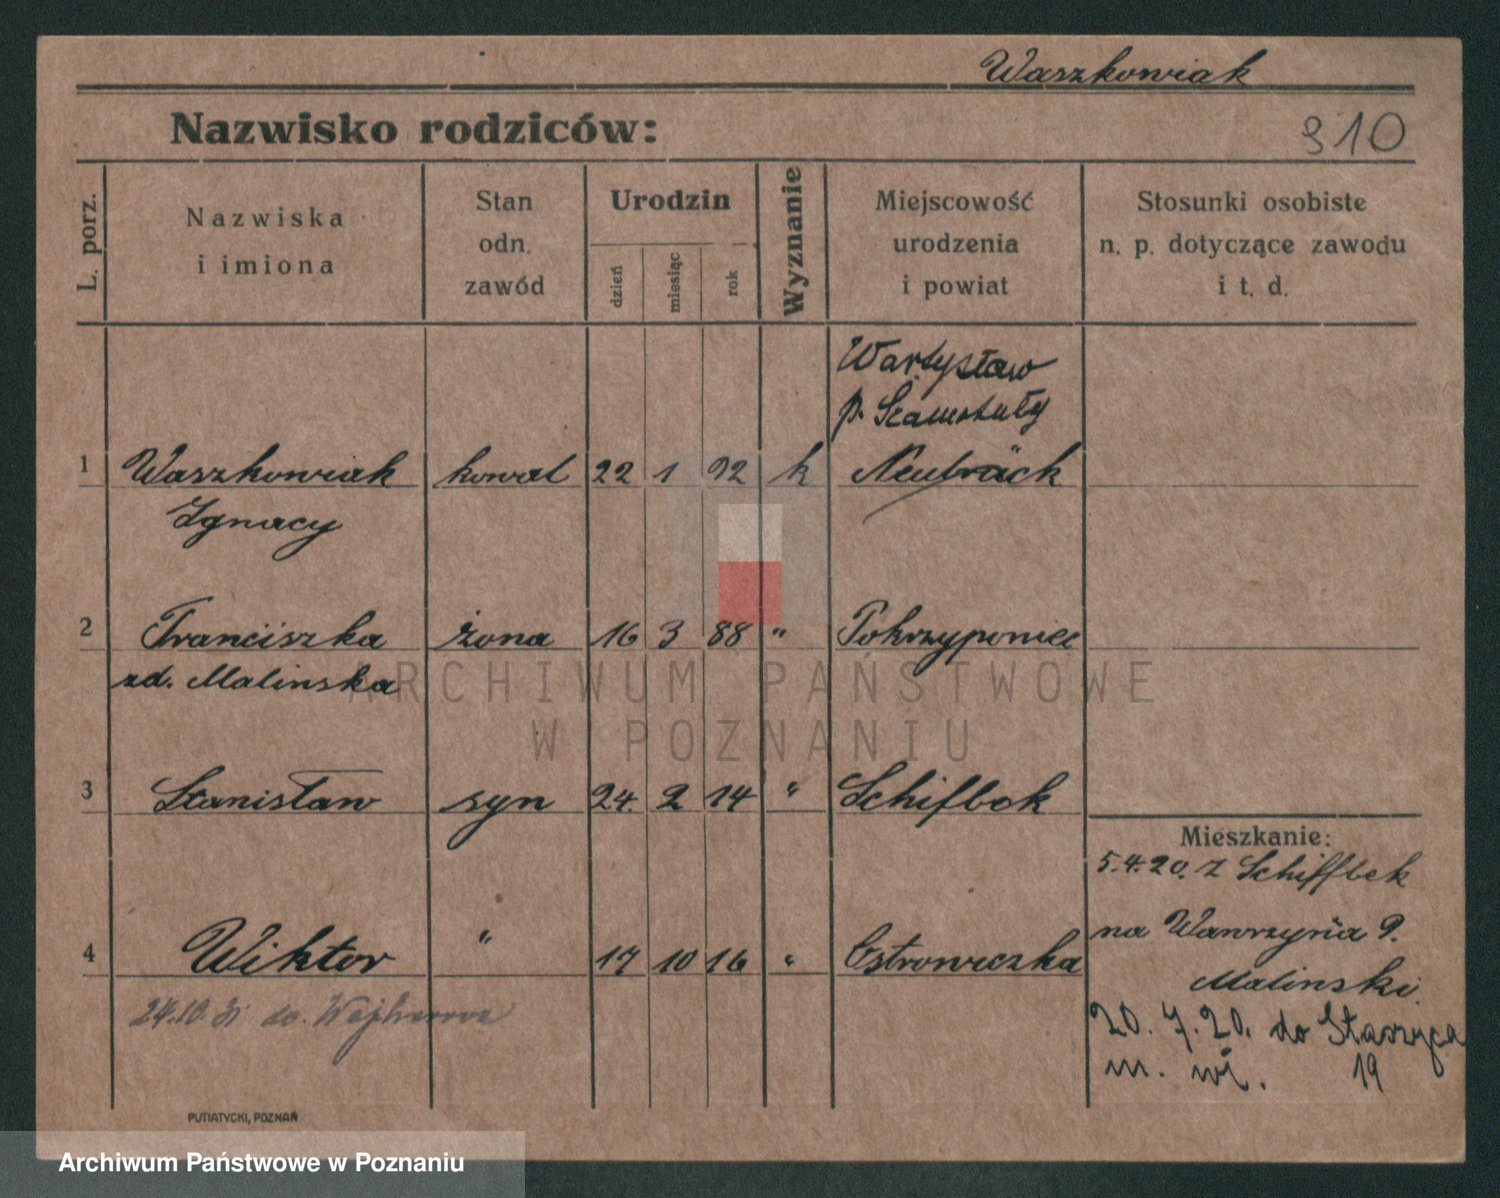 Waszkowiak
Nazwisko rodziców:
910
L. porz.
Nazwiska
i imiona
Stan
odn.
zawód
Urodzin
dzień
miesiąc
rok
Wyznanie
Miejscowość
urodzenia
i powiat
Stosunki osobiste
n. p. dotyczące zawodu
i t. d.
Wartysław
p. Szamotuły
1 Waszkowiak kowal 22 1 92 k Neubrück
Ignacy
2 Franciszka żona 16 3 88 "
zd. Malinska
3 Stanisław syn 24. 2 14 " Schifbek
Mieszkanie:
5.4.20. z Schiffbek
na Wawrzyńa 9.
4 Wiktor " 17 10 16 "
Malinski.
24.10.31 do. Wejherowa
20. 7. 20. do Staszyca
19
m. wł.
PUTIATYCKI, POZNAŃ
ARCHIWUM PAŃSTWOWE
W POZNANIU
Archiwum Państwowe w Poznaniu